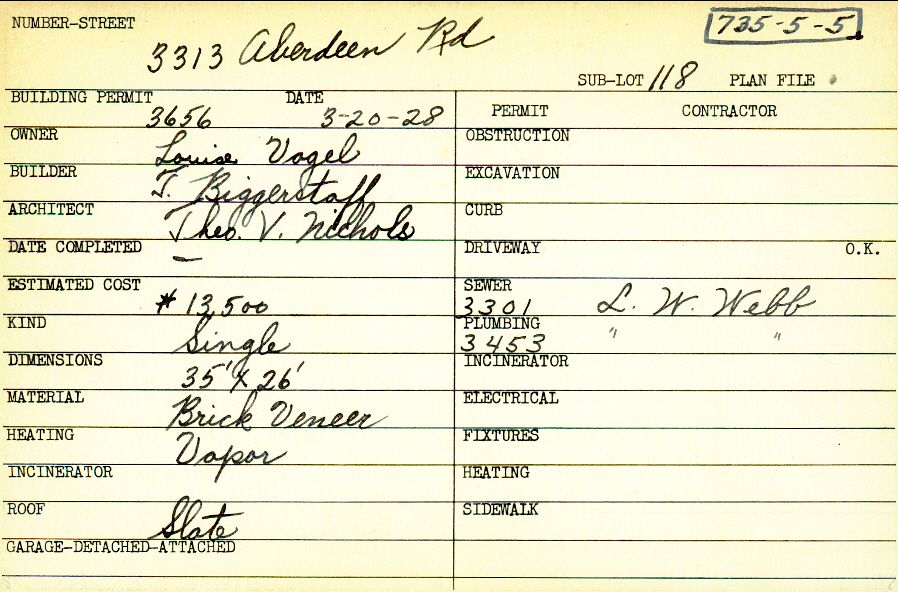 NUMBER-STREET
3313 Aberdeen Rd
735-5-5
SUB-LOT 118 PLAN FILE
BUILDING PERMIT DATE
3656 3-20-28
OWNER
Louise Vogel
BUILDER
T. Biggerstaff
ARCHITECT
Theo. V. Nichols
DATE COMPLETED
—
ESTIMATED COST
$ 13,500
KIND
Single
DIMENSIONS
35' X 26'
MATERIAL
Brick Veneer
HEATING
Vapor
INCINERATOR
ROOF
Slate
GARAGE-DETACHED-ATTACHED
PERMIT CONTRACTOR
OBSTRUCTION
EXCAVATION
CURB
DRIVEWAY O.K.
SEWER
3301 L. W. Webb
PLUMBING
3453 " "
INCINERATOR
ELECTRICAL
FIXTURES
HEATING
SIDEWALK